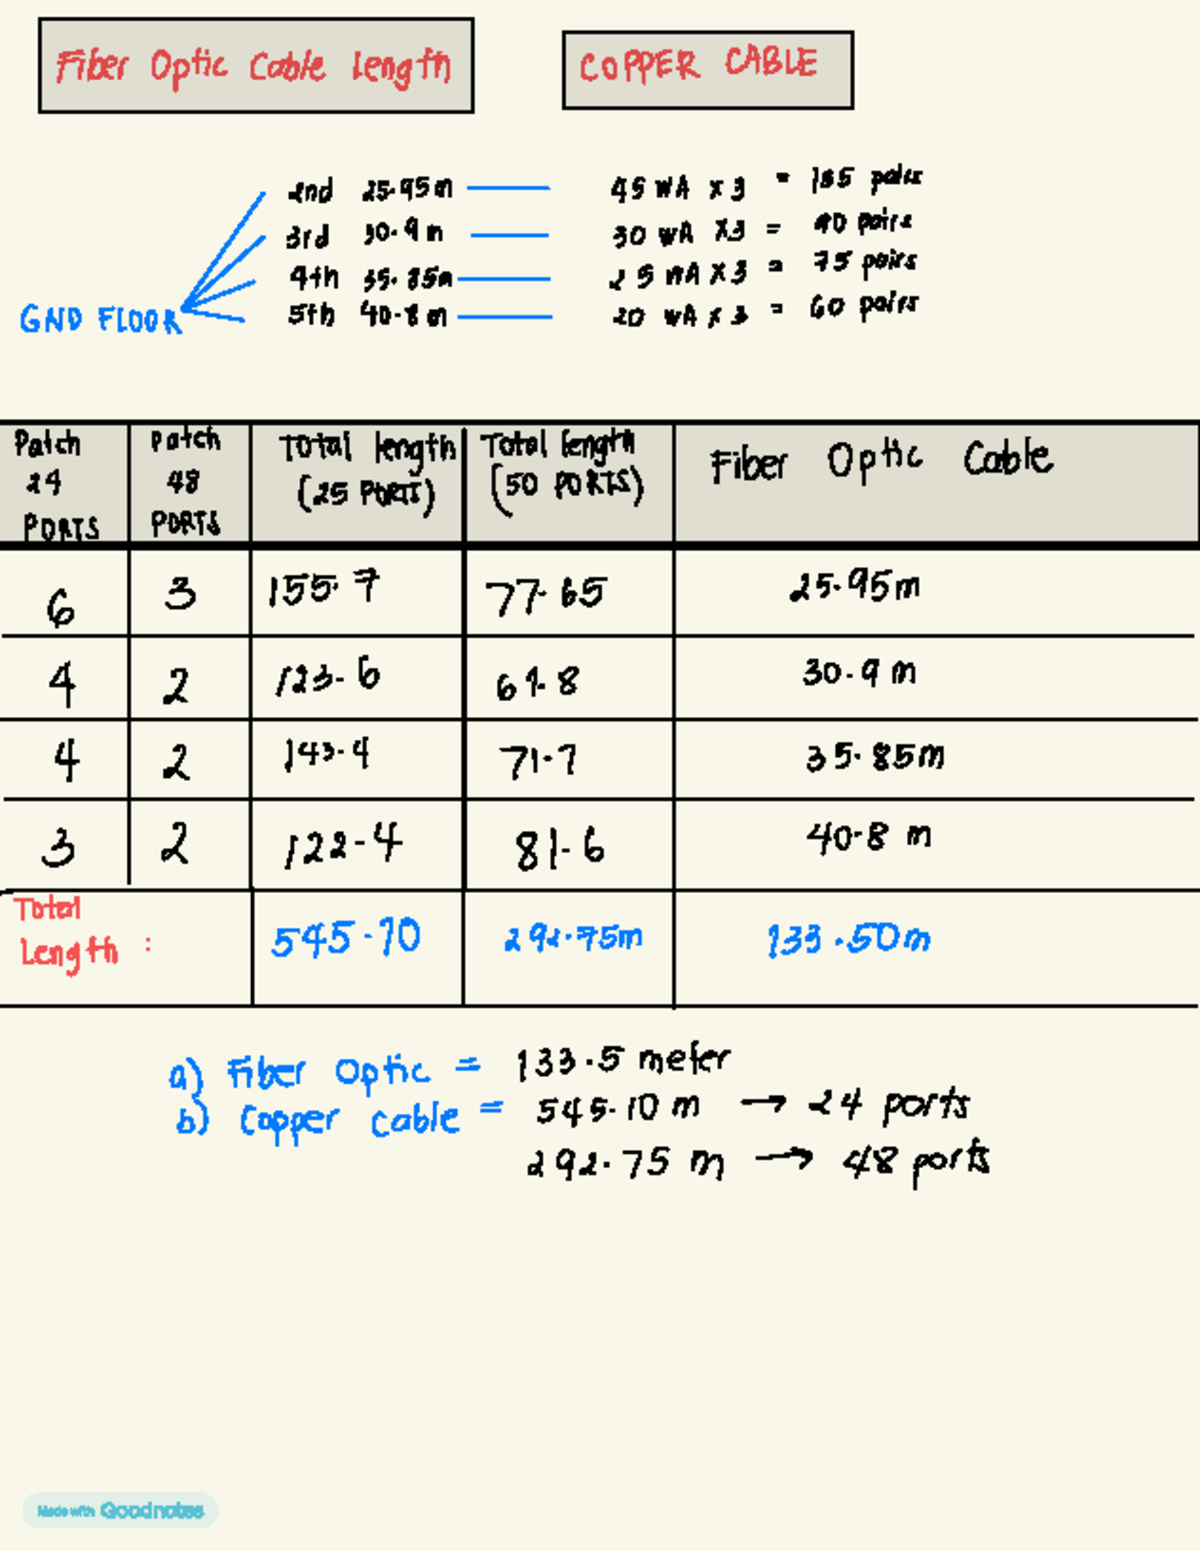 Fiber Optic Cable Length
COPPER CABLE
2nd 25.95m 45 WA x 3 = 135 pairs
3rd 30.9 m 30 WA x3 = 90 pairs
4th 35.85m 25 WA x 3 = 75 pairs
GND FLOOR
5th 40.8 m 20 WA x 3 = 60 pairs
Patch 24 PORTS
Patch 48 PORTS
Total length (25 PORTS)
Total length (50 PORTS)
Fiber Optic Cable
6 3 155.7 77.65 25.95m
4 2 123.6 61.8 30.9 m
4 2 143.4 71.7 35.85m
3 2 122.4 81.6 40.8 m
Total Length : 545.10 292.75m 133.50m
a) Fiber Optic = 133.5 meter
b) Copper cable = 545.10 m → 24 ports
292.75 m → 48 ports
Made with Goodnotes